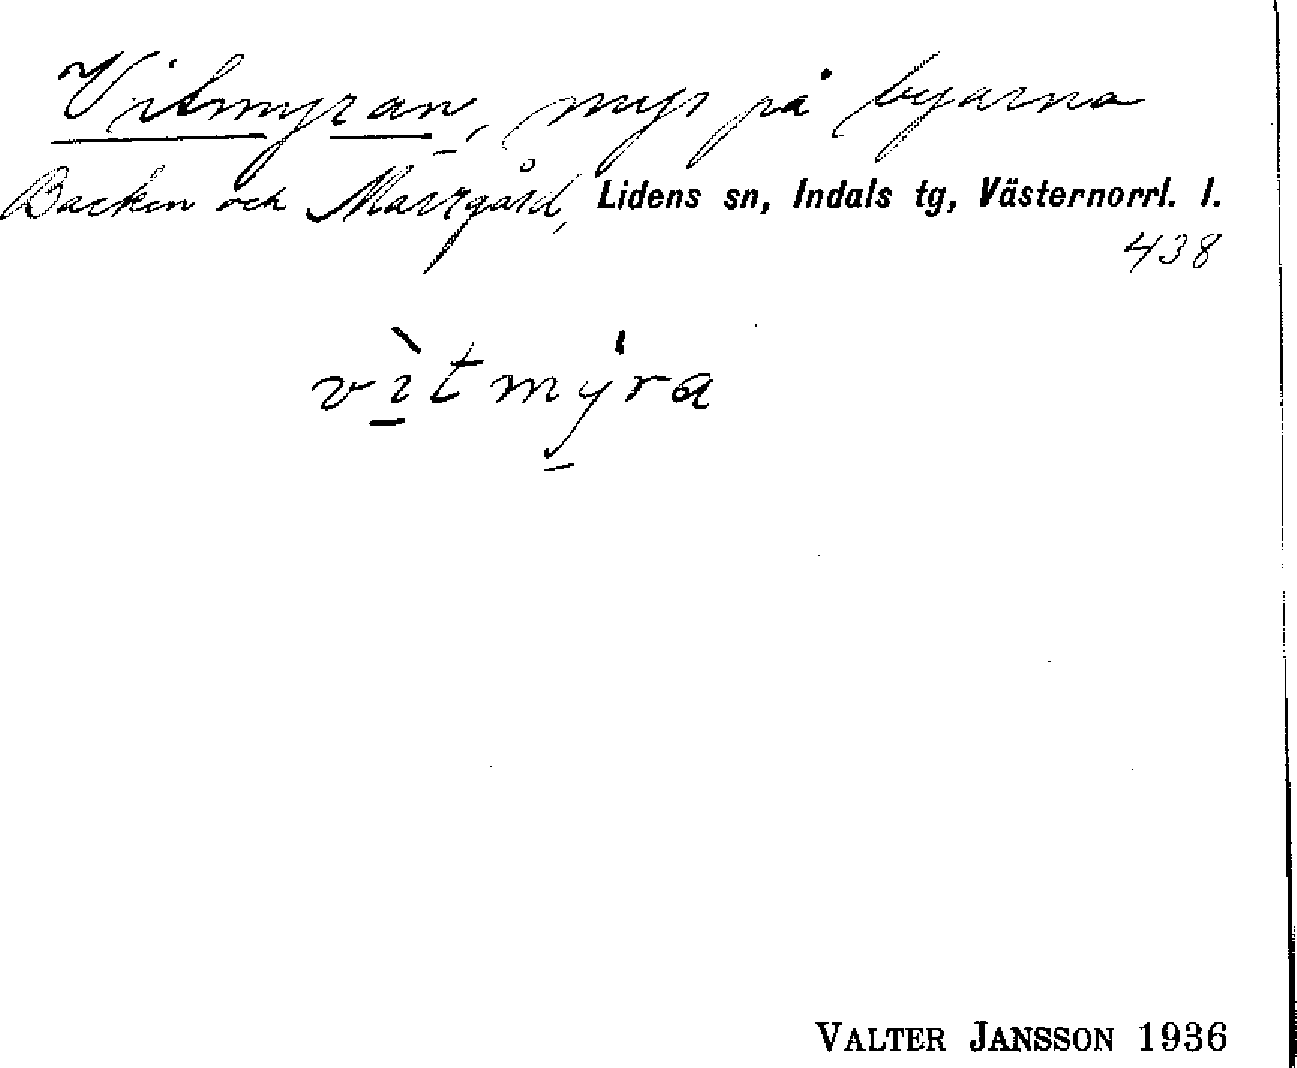 Vitmyran, myr på byarna
Backen och Märrgård, Lidens sn, Indals tg, Västernorrl. l.
438
vìtmy̍ra
VALTER JANSSON 1936